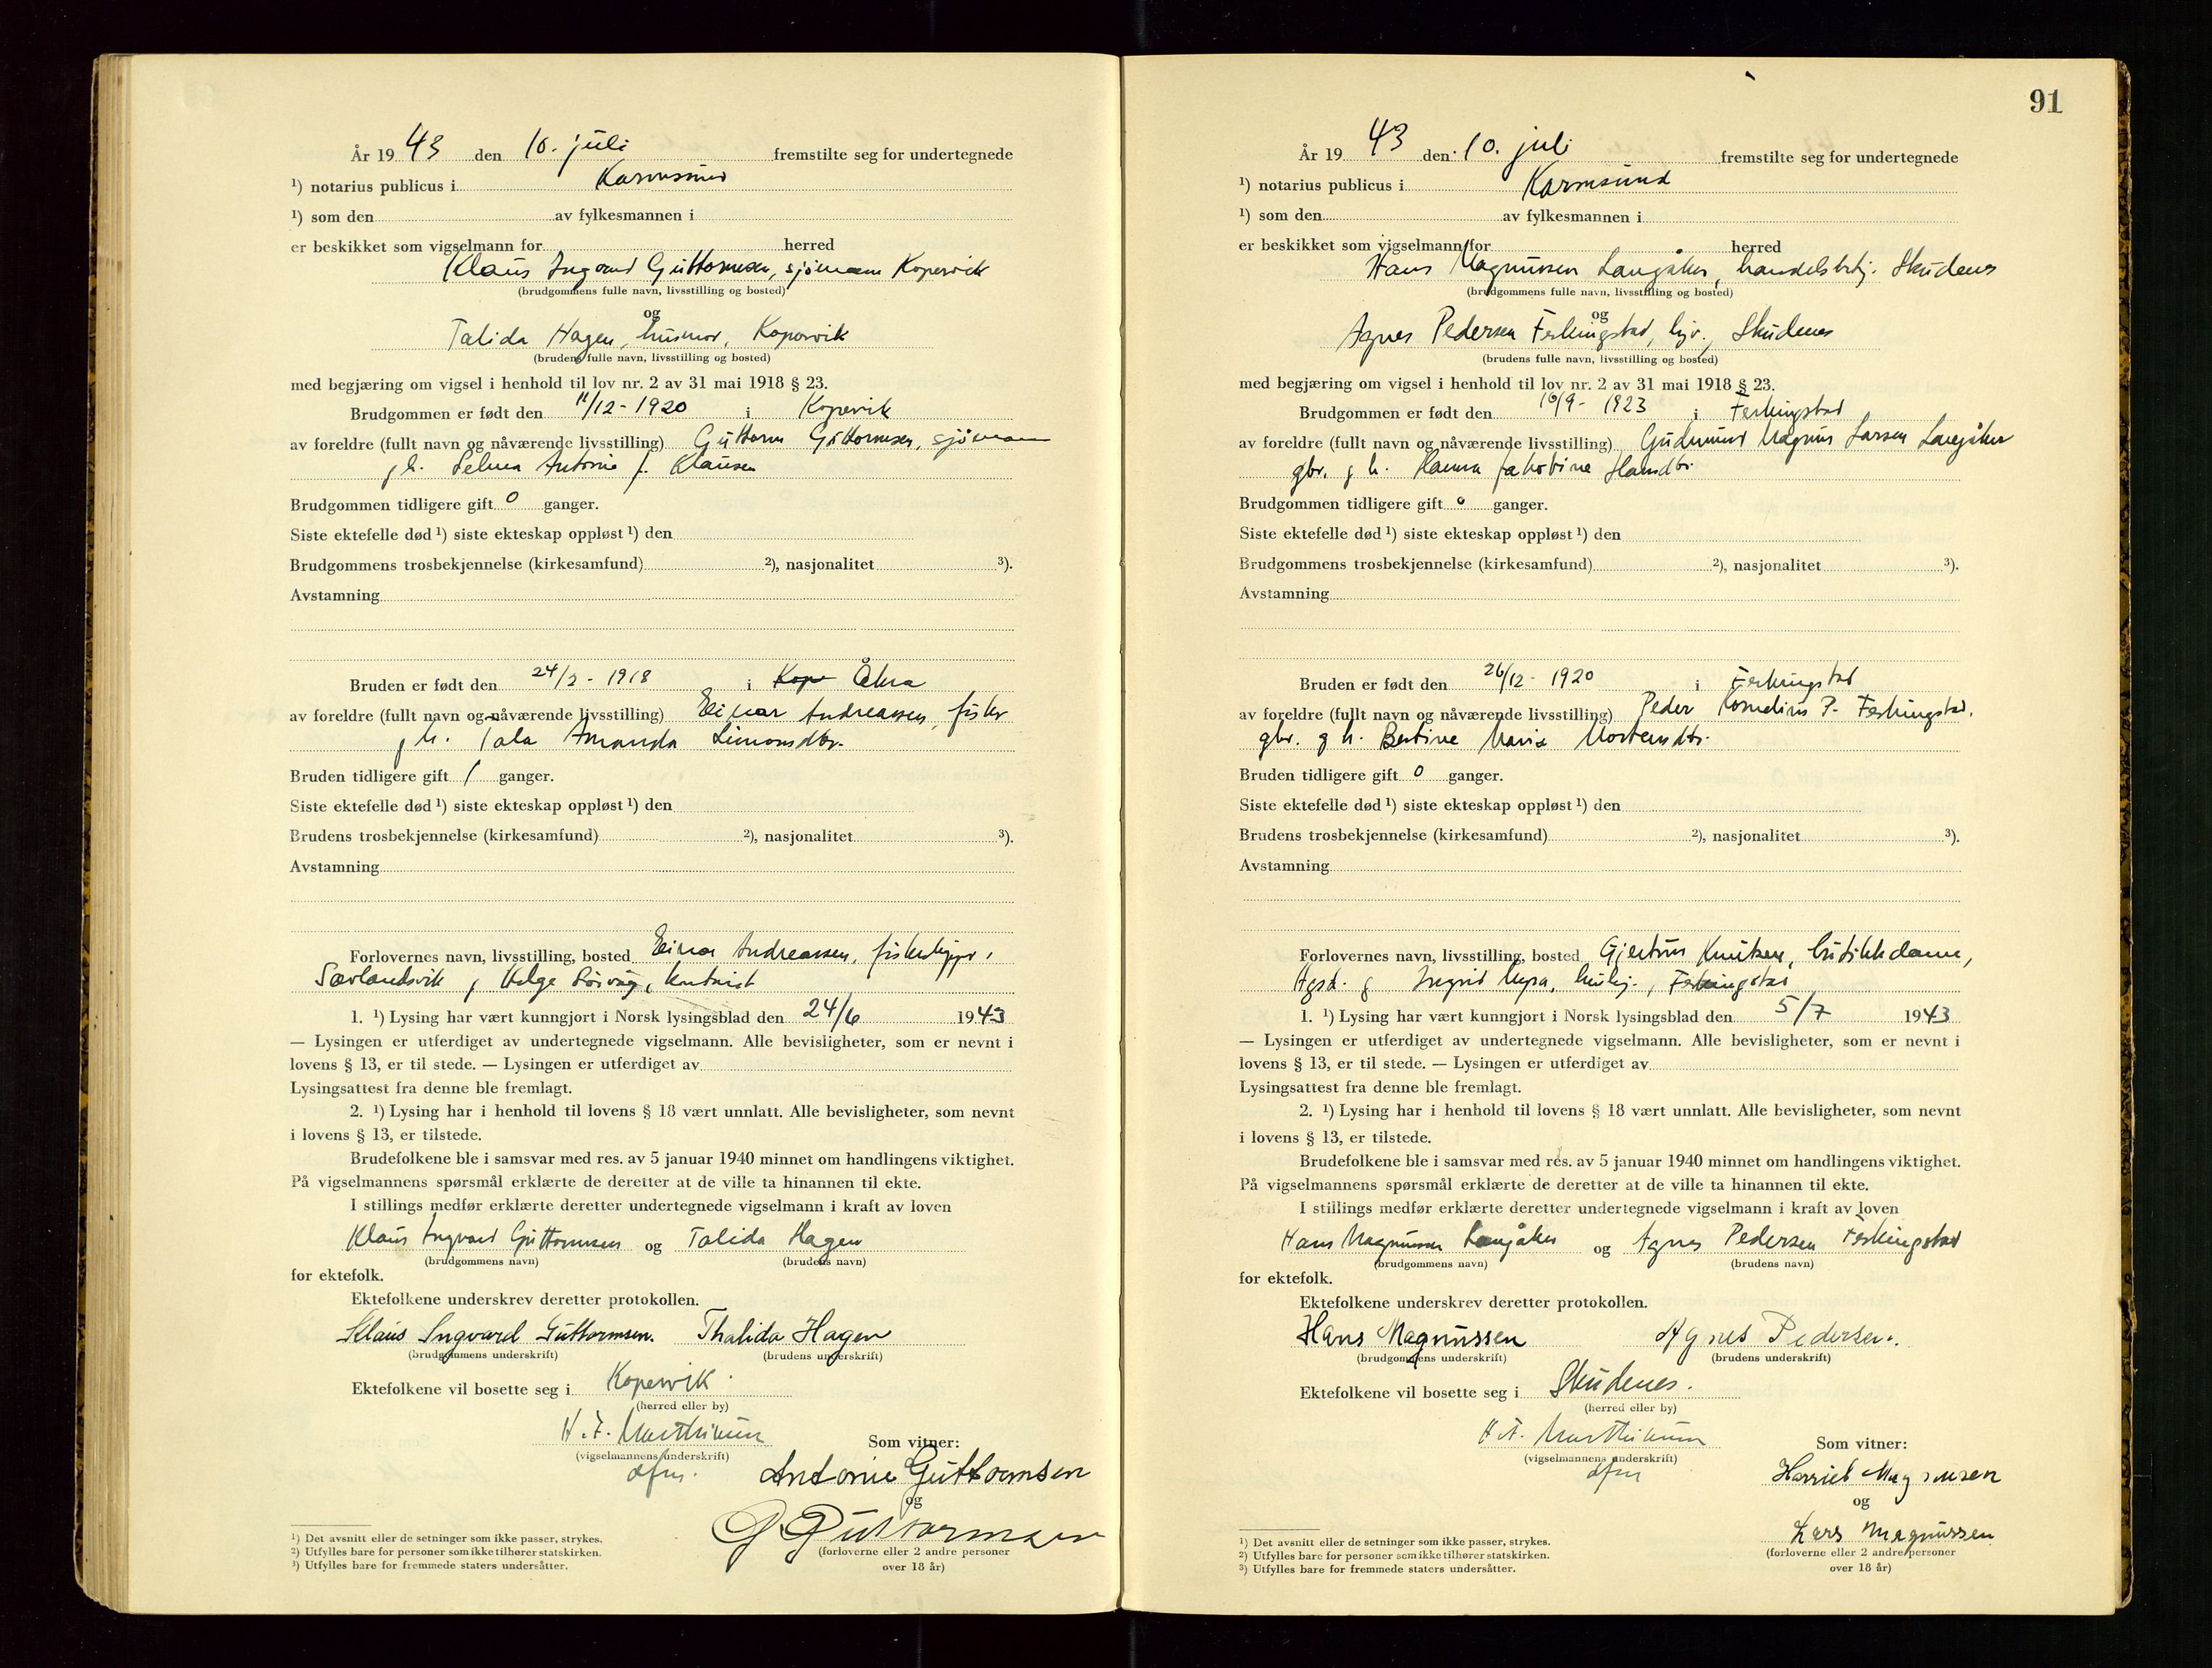 År 19 43 den 10. juli fremstilte seg for undertegnede
¹) notarius publicus i Karmsund
¹) som den av fylkesmannen i
er beskikket som vigselmann for herred
Klaus Ingvard Guttormsen, sjömann Kopervik
(brudgommens fulle navn, livsstilling og bosted)
og
Talida Hagen, husmor, Kopervik
(brudens fulle navn, livsstilling og bosted)
med begjæring om vigsel i henhold til lov nr. 2 av 31 mai 1918 § 23.
Brudgommen er født den 11/12 - 1920 i Kopervik
av foreldre (fullt navn og nåværende livsstilling) Guttorm Guttormsen, sjömann
g h. Selma Antonie f. Klausen
Brudgommen tidligere gift 0 ganger.
Siste ektefelle død ¹) siste ekteskap oppløst ¹) den
Brudgommens trosbekjennelse (kirkesamfund) ²), nasjonalitet ³).
Avstamning
Bruden er født den 24/2 - 1918 i Kope Åkra
av foreldre (fullt navn og nåværende livsstilling) Einar Andreassen, fisker
g h. Tala Amanda Simonsdtr.
Bruden tidligere gift 1 ganger.
Siste ektefelle død ¹) siste ekteskap oppløst ¹) den
Brudens trosbekjennelse (kirkesamfund) ²), nasjonalitet ³).
Avstamning
Forlovernes navn, livsstilling, bosted Einar Andreassen,
Sævlandsvik g Helge
1. ¹) Lysing har vært kunngjort i Norsk lysingsblad den 24/6 1943
— Lysingen er utferdiget av undertegnede vigselmann. Alle bevisligheter, som er nevnt i
lovens § 13, er til stede. — Lysingen er utferdiget av
Lysingsattest fra denne ble fremlagt.
2. ¹) Lysing har i henhold til lovens § 18 vært unnlatt. Alle bevisligheter, som nevnt
i lovens § 13, er tilstede.
Brudefolkene ble i samsvar med res. av 5 januar 1940 minnet om handlingens viktighet.
På vigselmannens spørsmål erklærte de deretter at de ville ta hinannen til ekte.
I stillings medfør erklærte deretter undertegnede vigselmann i kraft av loven
Klaus Ingvard Guttormsen og Talida Hagen
(brudgommens navn) (brudens navn)
for ektefolk.
Ektefolkene underskrev deretter protokollen.
Klaus Ingvard Guttormsen. Thalida Hagen
(brudgommens underskrift) (brudens underskrift)
Ektefolkene vil bosette seg i Kopervik.
(herred eller by)
(vigselmannens underskrift)
Som vitner:
Antonie Guttormsen
og
G. Guttormsen
(forloverne eller 2 andre personer
over 18 år)
¹) Det avsnitt eller de setninger som ikke passer, strykes.
²) Utfylles bare for personer som ikke tilhører statskirken.
³) Utfylles bare for fremmede staters undersåtter.
91
År 19 43 den 10. juli fremstilte seg for undertegnede
¹) notarius publicus i Karmsund
¹) som den av fylkesmannen i
er beskikket som vigselmann for herred
Hans Magnussen Langåker, handelsbetj. Skudenes
(brudgommens fulle navn, livsstilling og bosted)
og
Agnes Pedersen Ferkingstad, hjv., Skudenes
(brudens fulle navn, livsstilling og bosted)
med begjæring om vigsel i henhold til lov nr. 2 av 31 mai 1918 § 23.
Brudgommen er født den 16/9 - 1923 i Ferkingstad
av foreldre (fullt navn og nåværende livsstilling) Gudmund Magnus Larsen Langåker
gbr. g h. Hanna Jakobine Hansdtr.
Brudgommen tidligere gift 0 ganger.
Siste ektefelle død ¹) siste ekteskap oppløst ¹) den
Brudgommens trosbekjennelse (kirkesamfund) ²), nasjonalitet ³).
Avstamning
Bruden er født den 26/12 - 1920 i Ferkingstad
av foreldre (fullt navn og nåværende livsstilling) Peder Kornelius P. Ferkingstad,
gbr. g h. Bertine Maria Mortensdtr.
Bruden tidligere gift 0 ganger.
Siste ektefelle død ¹) siste ekteskap oppløst ¹) den
Brudens trosbekjennelse (kirkesamfund) ²), nasjonalitet ³).
Avstamning
Forlovernes navn, livsstilling, bosted Gjertrus Knutsen, butikkdame,
g Ingrid Ferkingstad
1. ¹) Lysing har vært kunngjort i Norsk lysingsblad den 5/7 1943
— Lysingen er utferdiget av undertegnede vigselmann. Alle bevisligheter, som er nevnt i
lovens § 13, er til stede. — Lysingen er utferdiget av
Lysingsattest fra denne ble fremlagt.
2. ¹) Lysing har i henhold til lovens § 18 vært unnlatt. Alle bevisligheter, som nevnt
i lovens § 13, er tilstede.
Brudefolkene ble i samsvar med res. av 5 januar 1940 minnet om handlingens viktighet.
På vigselmannens spørsmål erklærte de deretter at de ville ta hinannen til ekte.
I stillings medfør erklærte deretter undertegnede vigselmann i kraft av loven
Hans Magnussen Langåker og Agnes Pedersen Ferkingstad
(brudgommens navn) (brudens navn)
for ektefolk.
Ektefolkene underskrev deretter protokollen.
Hans Magnussen Agnes Pedersen.
(brudgommens underskrift) (brudens underskrift)
Ektefolkene vil bosette seg i Skudenes.
(herred eller by)
(vigselmannens underskrift)
Som vitner:
Harriet Magnussen
og
Lars Magnussen
(forloverne eller 2 andre personer
over 18 år)
¹) Det avsnitt eller de setninger som ikke passer, strykes.
²) Utfylles bare for personer som ikke tilhører statskirken.
³) Utfylles bare for fremmede staters undersåtter.